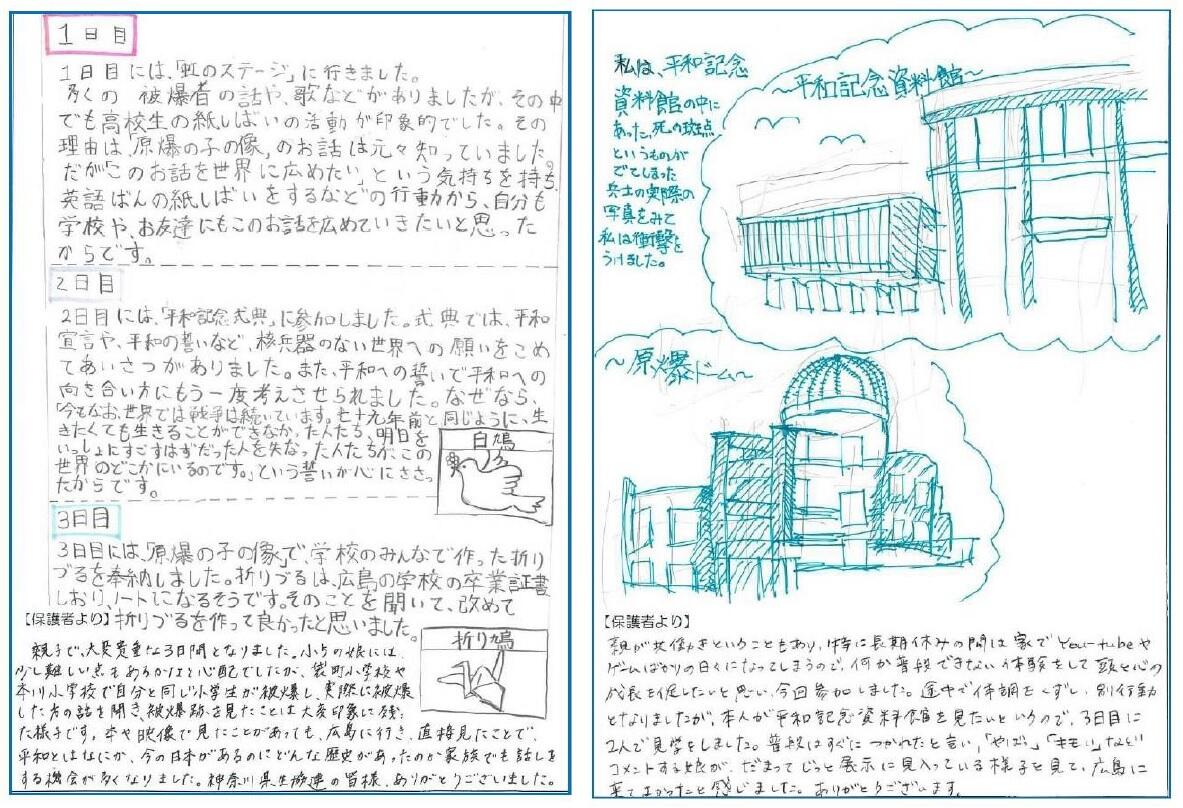 1日目
1日目には、「虹のステージ」に行きました。
多くの 被爆者の話や、歌などがありましたが、その中
でも高校生の紙しばいの活動が印象的でした。その
理由は、「原爆の子の像」のお話は元々知っていました。
だが「このお話を世界に広めたい」という気持ちを持ち、
英語ばんの紙しばいをするなどの行動から、自分も
学校や、お友達にもこのお話を広めていきたいと思った
からです。
2日目
2日目には、「平和記念式典」に参加しました。式典では、平和
宣言や、平和の誓いなど、核兵器のない世界への願いをこめ
てあいさつがありました。また、平和への誓いで平和への
向き合い方にもう一度考えさせられました。なぜなら、
「今もなお、世界では戦争は続いています。七十九年前と同じように、生
きたくても生きることができなかった人たち、明日を
いっしょにすごすはずだった人を失なった人たちが、この
世界のどこかにいるのです。」という誓いが心にささっ
たからです。
白鳩
3日目
3日目には、「原爆の子の像」で、学校のみんなで作った折り
づるを奉納しました。折りづるは、広島の学校の卒業証書
しおり、ノートになるそうです。そのことを聞いて、改めて
折りづるを作って良かったと思いました。
折り鳩
【保護者より】
親子で、大変貴重な3日間となりました。小5の娘には、
少し難しい点もあるかなと心配でしたが、袋町小学校や
本川小学校で自分と同じ小学生が被爆し、実際に被爆
した方の話を聞き、被爆跡を見たことは大変印象に残っ
た様子です。本や映像で見たことがあっても、広島に行き、直接見たことで、
平和とはなにか、今の日本があるのにどんな歴史があったのか家族でも話しを
する機会が多くなりました。神奈川県生協連の皆様、ありがとうございました。
私は、平和記念
資料館の中に
あった、死の斑点
というものが
でてしまった
兵士の実際の
写真をみて
私は衝撃を
うけました。
〜平和記念資料館〜
〜原爆ドーム〜
【保護者より】
親が共働きということもあり、特に長期休みの間は家でYoutubeや
ゲームばかりの日々になってしまうので、何か普段できない体験をして頭と心の
成長を促したいと思い、今回参加しました。途中で体調をくずし、別行動
となりましたが、本人が平和記念資料館を見たいというので、3日目に
2人で見学をしました。普段はすぐにつかれたと言い、「やばっ」「キモい」など
コメントする娘が、だまってじっと展示に見入っている様子を見て、広島に
来てよかったと感じました。ありがとうございます。